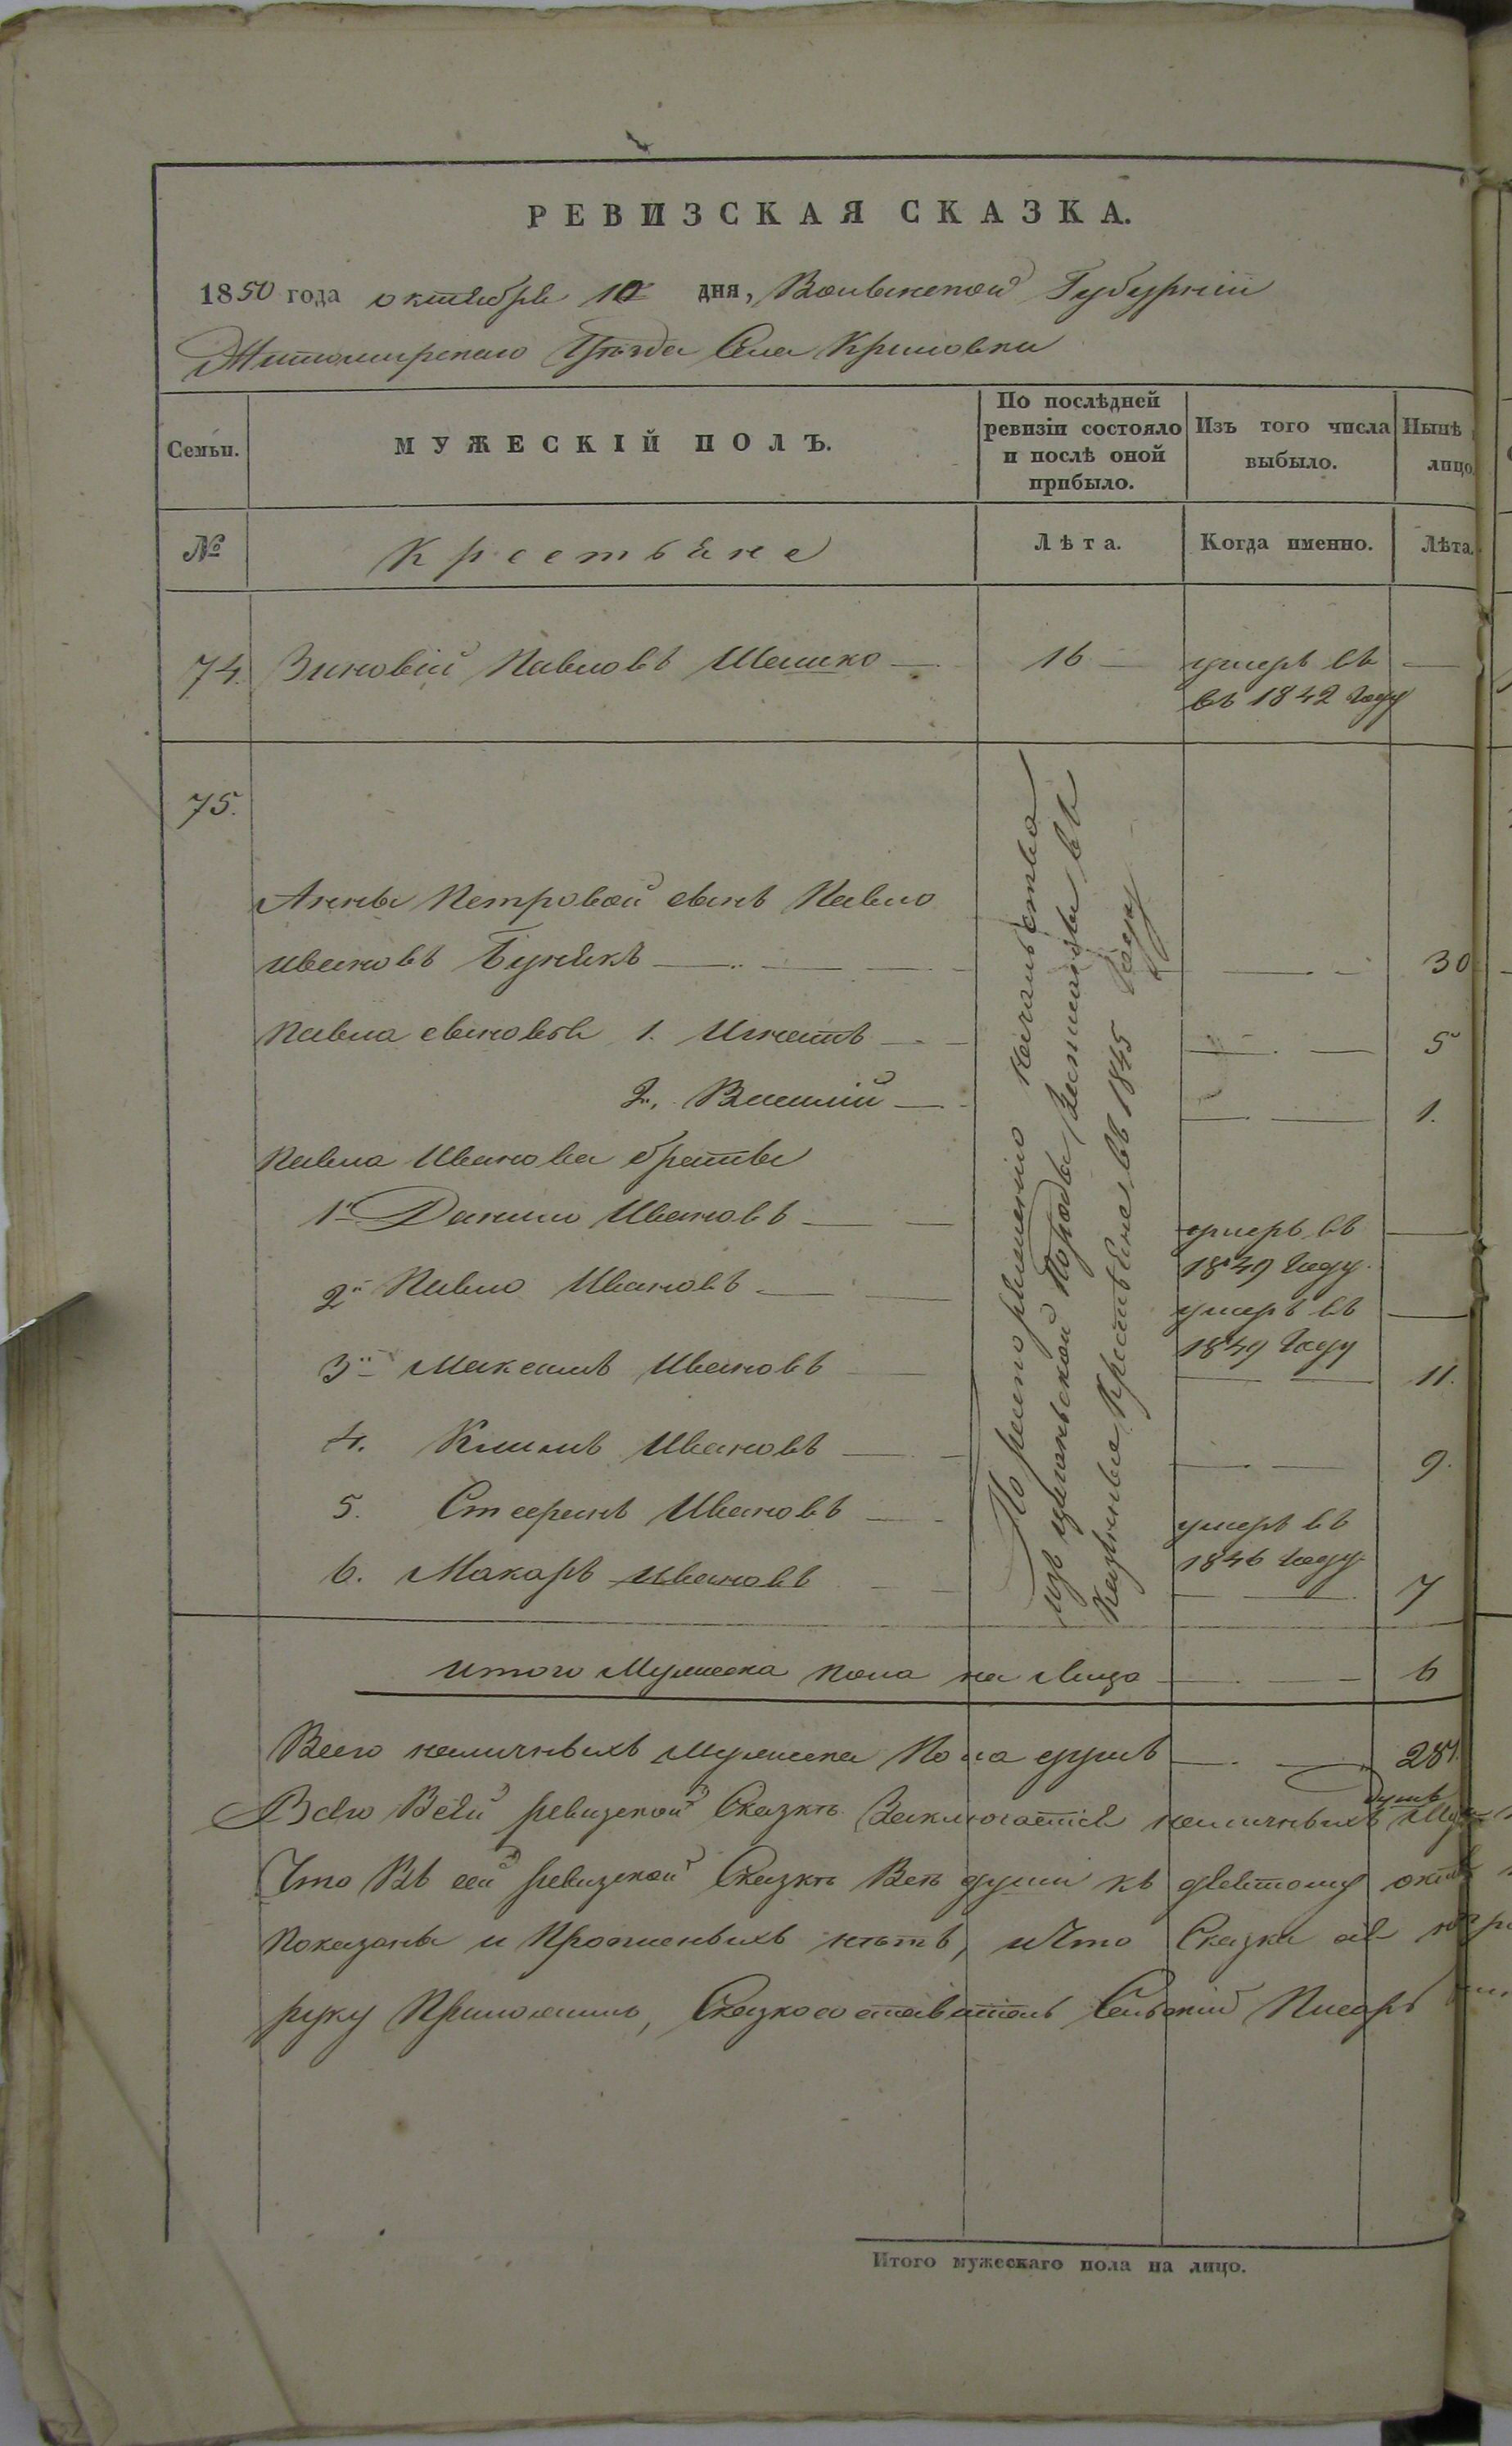 РЕВИЗСКАЯ СКАЗКА.
1850 года октября 10 дня, Волынской Губернїи
Житомирскаго Уѣзда Села Крыловки
Семьи.
МУЖЕСКІЙ ПОЛЪ.
По послѣдней
ревизіи состояло
и послѣ оной
прибыло.
Изъ того числа
выбыло.
Нынѣ
лицо
№
Крестьяне
Лѣта.
Когда именно.
Лѣта.
74. Зиновій Павловъ Шешко — 16 — умеръ въ —
въ 1842 году
75.
Анны Петровой сынъ Павло
Ивановъ Бунякъ — 30
Павла сыновья 1. Игнатъ — 5
2. Василій — 1.
Павла Иванова братья
1й Данило Ивановъ — умеръ въ —
1849 году.
2й Павло Ивановъ — умеръ въ —
1849 году
3й Максимъ Ивановъ — 11.
4. Климъ Ивановъ — 9.
5. Стефанъ Ивановъ — умеръ въ
1846 году
6. Макаръ Ивановъ — 7
По решенію начальства
изъ цыганской породы записаны въ
казенные крестьяне въ 1845 году
Итого Мужеска пола на лицо — 6
Всего наличныхъ мужеска пола душъ — 281.
душъ
Всего Всей ревизской Сказкѣ Заключается наличныхъ
Что Въ сей ревизской Сказкѣ Всѣ души къ девятому
показаны и Прописныхъ нѣтъ, и Что Сказка
руку Приложилъ, Сказкосоставитель Сельскій Писарь
Итого мужескаго пола на лицо.